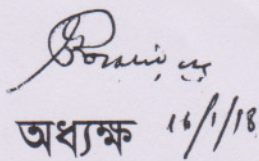 অধ্যক্ষ 16/1/18